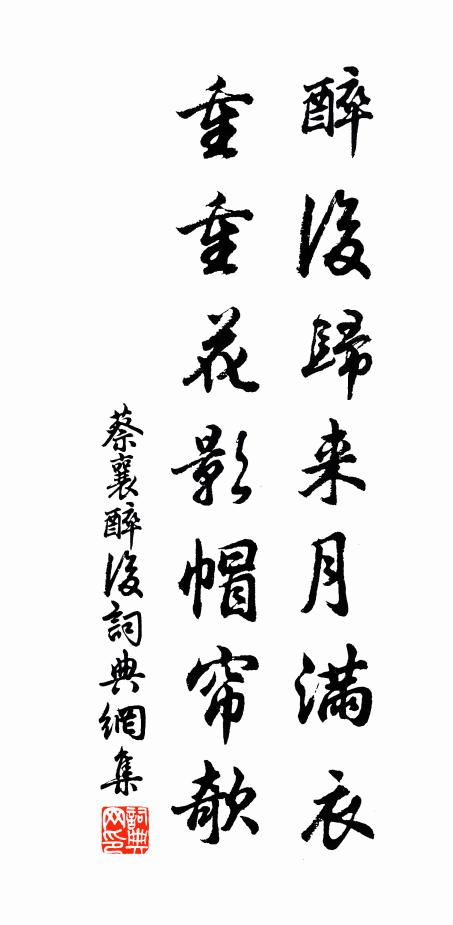 醉後歸来月滿衣
重重花影帽帘欹
蔡襄醉後詞典網集
詞典網印